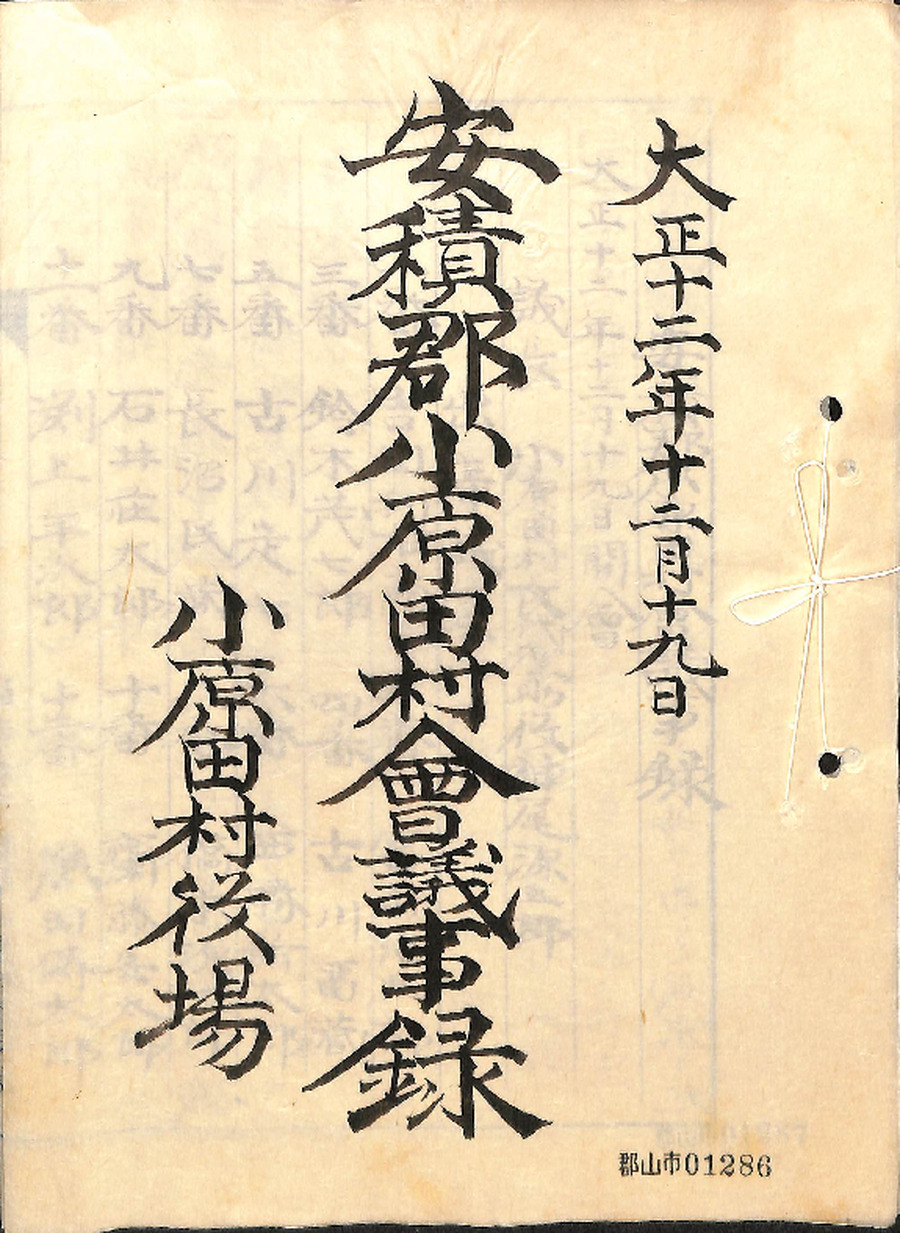 大正十二年十二月十九日
安積郡小原田村會議事録
小原田村役場
郡山市01286